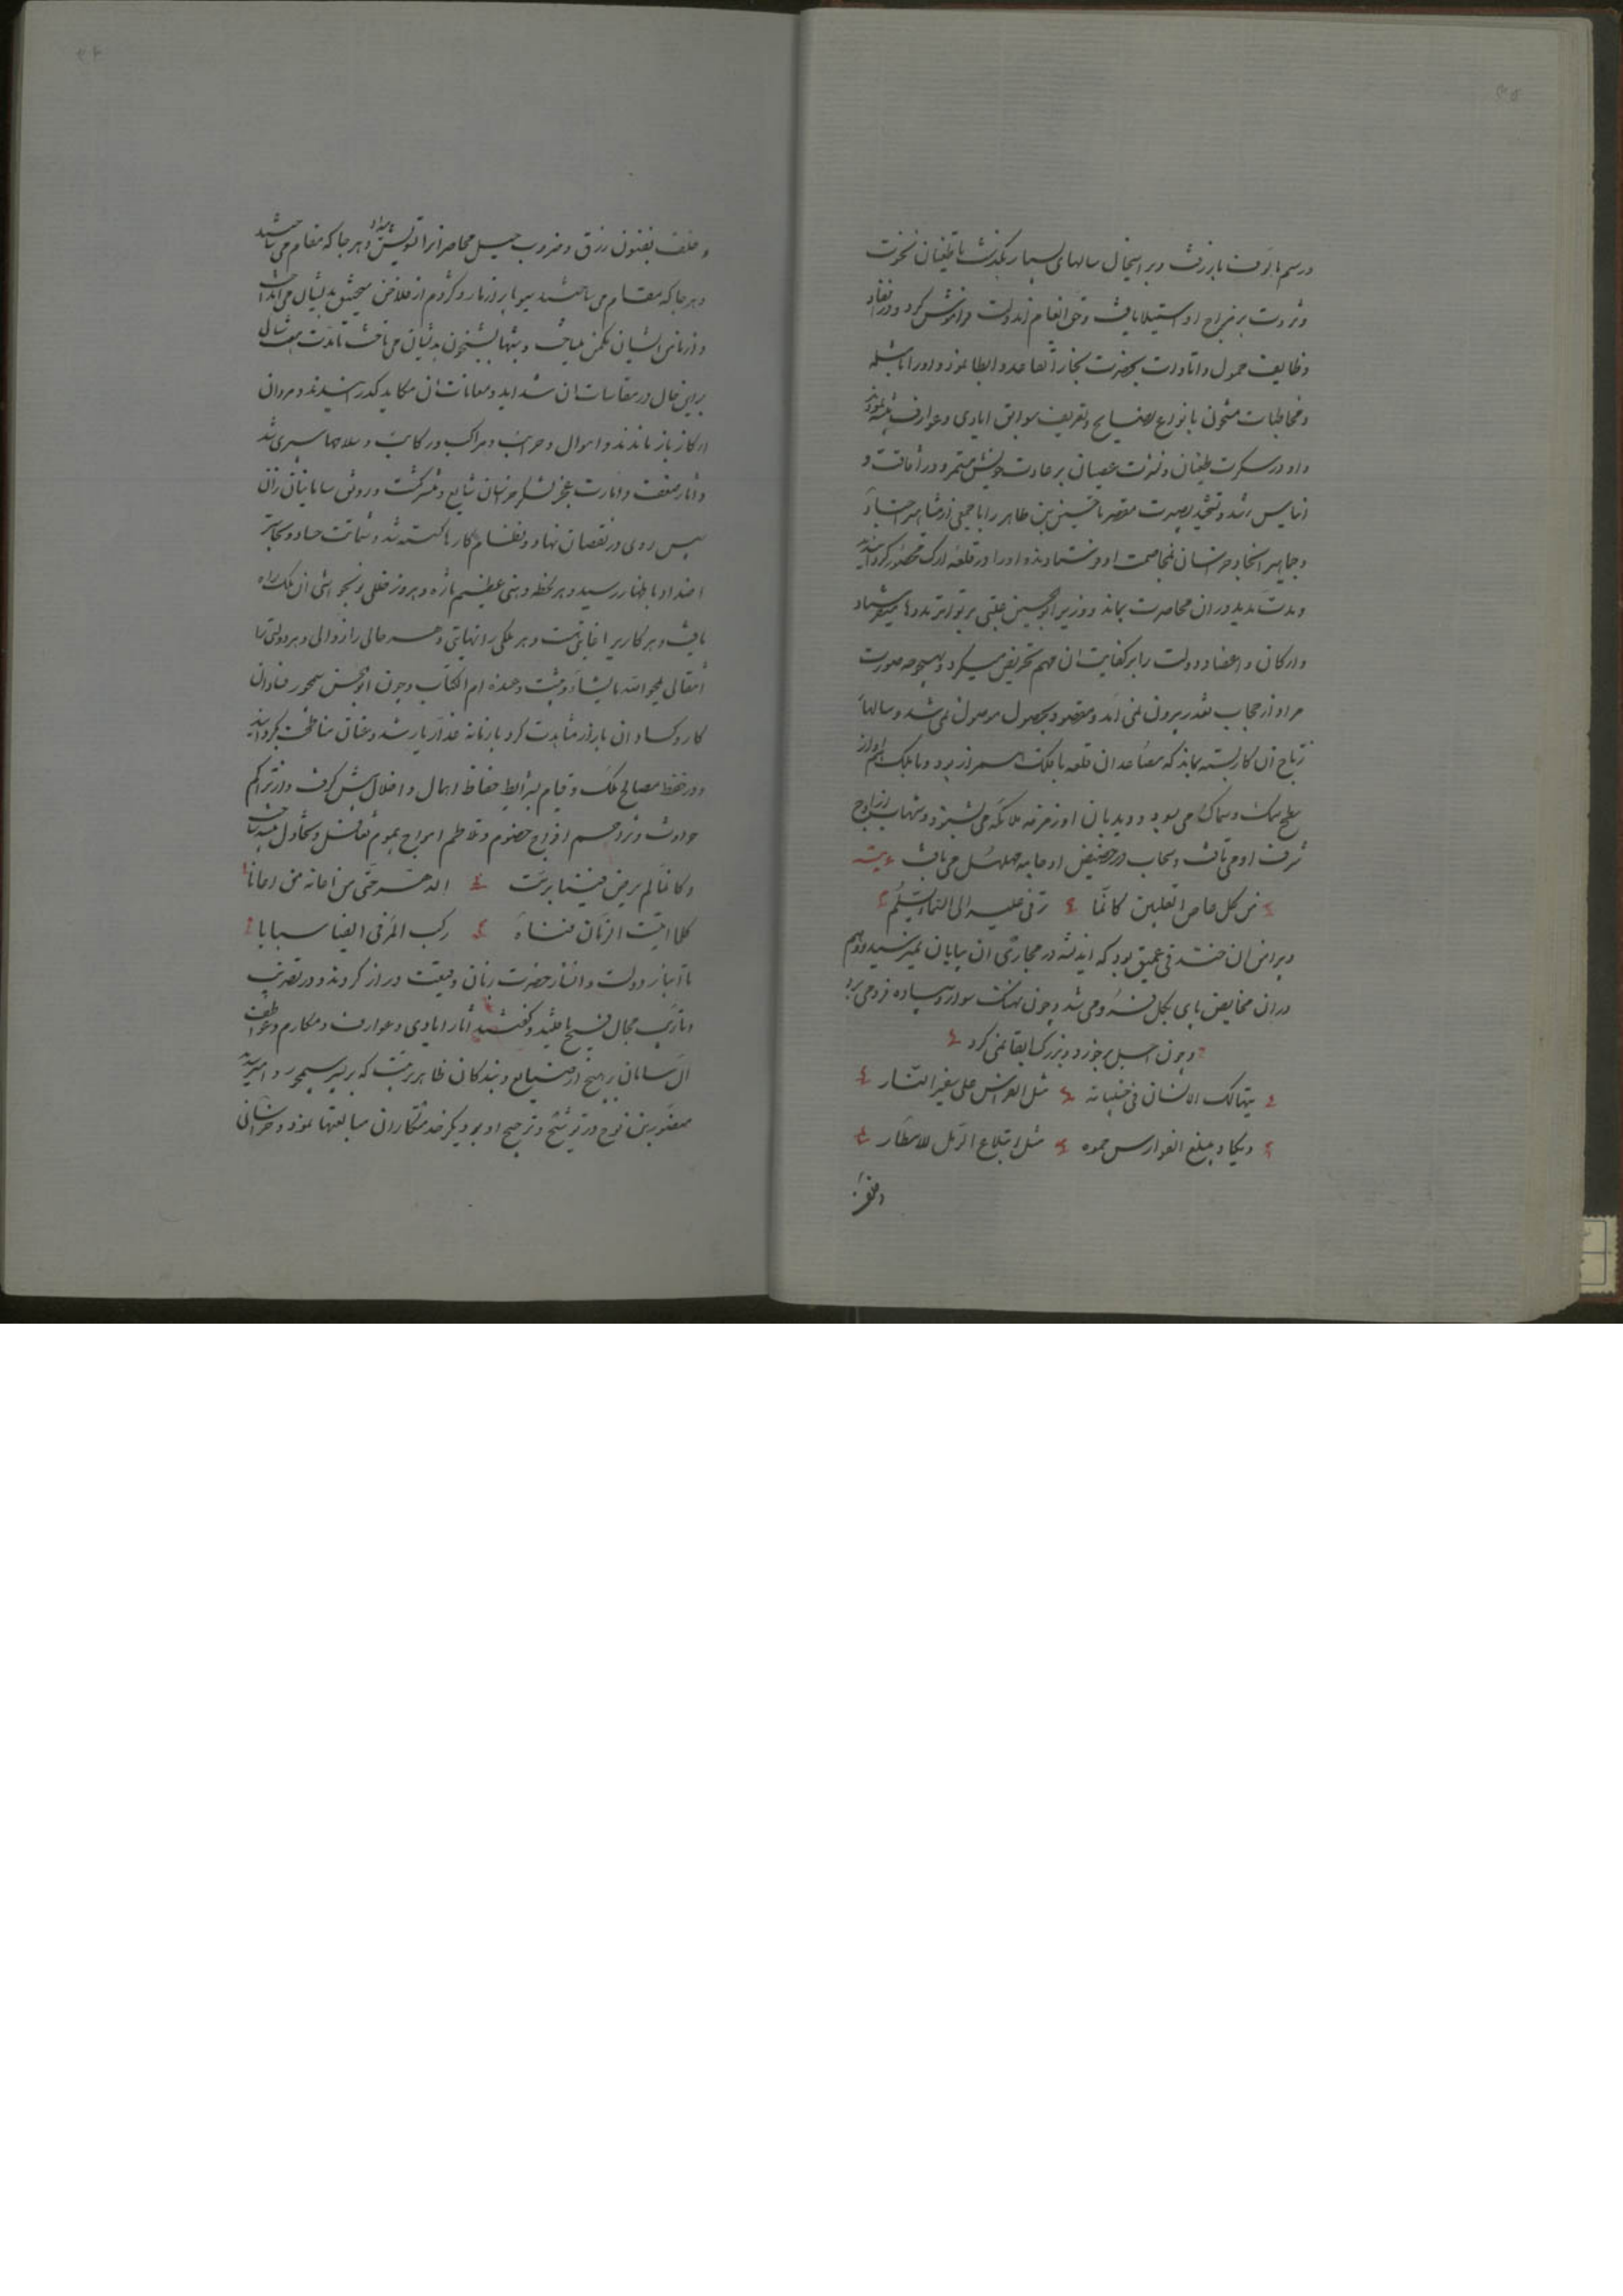 ورسم مألوف باز رفت وبر این حال سالهای بسیار بکذشت تا طغیان نخوت
وثروت بر مزاج او استیلا یافت وحق انعام آن دولت فراموش کرد ودر نفاذ
وظایف حمول واتاوات بحضرت بخارا تقاعد وابطا نمود واورا بامثله
ومخاطبات مشحون بانواع نصایح وتعریف سوابق ایادی وعوارف تنبیه نمودند
واو در سکرت طغیان ونخوت عصیان بر عادت خویش مستمر ودر افاقت و
حسین بن طاهر را با جمعی از مشاهیر
وجماهیر انجاد خراسان بمخاصمت او فرستادند واورا در قلعه ارک محصور کردانیدند
ومدت مدید در ان محاصرت بماند ووزیر ابو الحسین عتبی بر تواتر مددها میفرستاد
وارکان واعضاد دولت را بر کفایت ان مهم تحریض میکرد وبهیچوجه صورت
مراد از حجاب تعذر بیرون نمی آمد ومقصود بحصول موصول نمی شد وسالها
رتاج آن کار بسته بماند که مصاعد ان قلعه با فلک همراز بود وبا ملک هم آواز
سطح سمک وسماک می بسود ودیدبان او زمزمه ملائکه می شنود وشهاب از اوج
شرف او می تافت وسحاب در حضیض او جامه مهلهل می بافت بیت
من کل عاص القلبین کانما ترقی علیه الی السماء بسلم
وپیرامن ان خندقی عمیق بود که اندیشه در مجاری ان بپایان نمیرسید ووهم
در ان مخایض پای بکل فرو می شد وچون نهنک سوار وپیاده فرو می برد
وچون اجل بر خرد وبزرک ابقا نمی کرد
یتهالک الانسان فی جنباته مثل الفراش علی سفیر النار
ویکاد یبلع الفوارس حموه مثل ابتلاع الرمل للامطار
وخلف
وخلف بفنون رزق وضروب حیل محاصرانرا تشویش میداد وهر جا که مقام می ساختند
وهر جا که مقام می ساختند سبوها پر از مار وکژدم از فلاخن منجنیق بدیشان می انداخت
واز مأمن ایشان مکمن میساخت وشبها بشبیخون بدیشان می تاخت تا مدت هفت سال
برین حال در مقاسات ان شداید ومعانات ان مکاید کذرانیدند ومردان
از کار باز ماندند واموال وخزاین ومراکب ورکایب وسلاحها سپری شد
وآثار ضعف وامارت عجز لشکر خراسان شایع ومنتشر کشت ورونق سامانیان از ان
پس روی در نقصان نهاد ونظام کارها کسسته شد وشماتت حساد
اضداد باظهار رسید وهر لحظه وهنی عظیم تازه وهر روز خللی نو بحواشی ان ملک راه
یافت وهر کاریرا غایتیست وهر ملکی را نهایتی وهر حالی را زوالی وهر دولتی را
انتقالی یمحو الله ما یشاء ویثبت وعنده ام الکتاب وچون ابو الحسن سیمجور فساد ان
کار وکساد ان بازار مشاهدت کرد با زمانه غدار یار شد وعنان مناصحت بکردانید
ودر حفظ مصالح ملک وقیام بشرایط حفاظ اهمال واخلال پیش کرفت ودر تراکم
حوادث وتزاحم افواج خصوم وتلاطم امواج هموم تغافل وتخاذل میساخت
وکانما لم یرض فینا بریب الدهر حتی من اعانه من اعانا
کلما انبت الزمان قناة رکب المرء فی القناة سنانا
تا ابناء دولت وانشاء حضرت زبان وقیعت دراز کردند ودر تصریف
وتأنیب مجال فسیح یافتند وکفتند آثار ایادی وعوارف ومکارم وعواطف
آل سامان بر هیچ از صنایع وبندکان ظاهرتر نیست که بر پسر سیمجور وامیر سدید
منصور بن نوح در ترشیح وترجیح او بر دیکر خدمتکاران مبالغتها نمود وخراسان